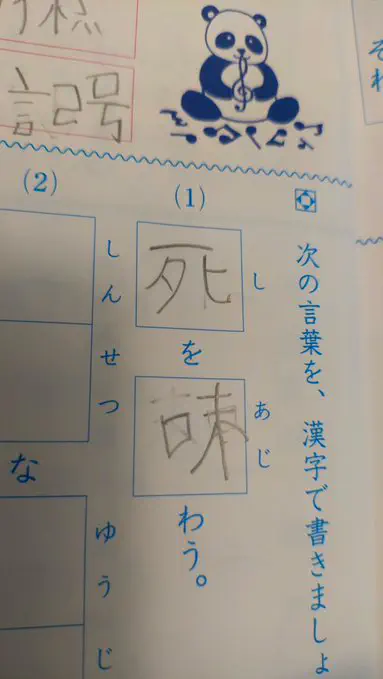 それ
記号
次の言葉を、漢字で書きましょ
(1)
し
あじ
死を味わう。
(2)
しんせつ
ゆうじ
な